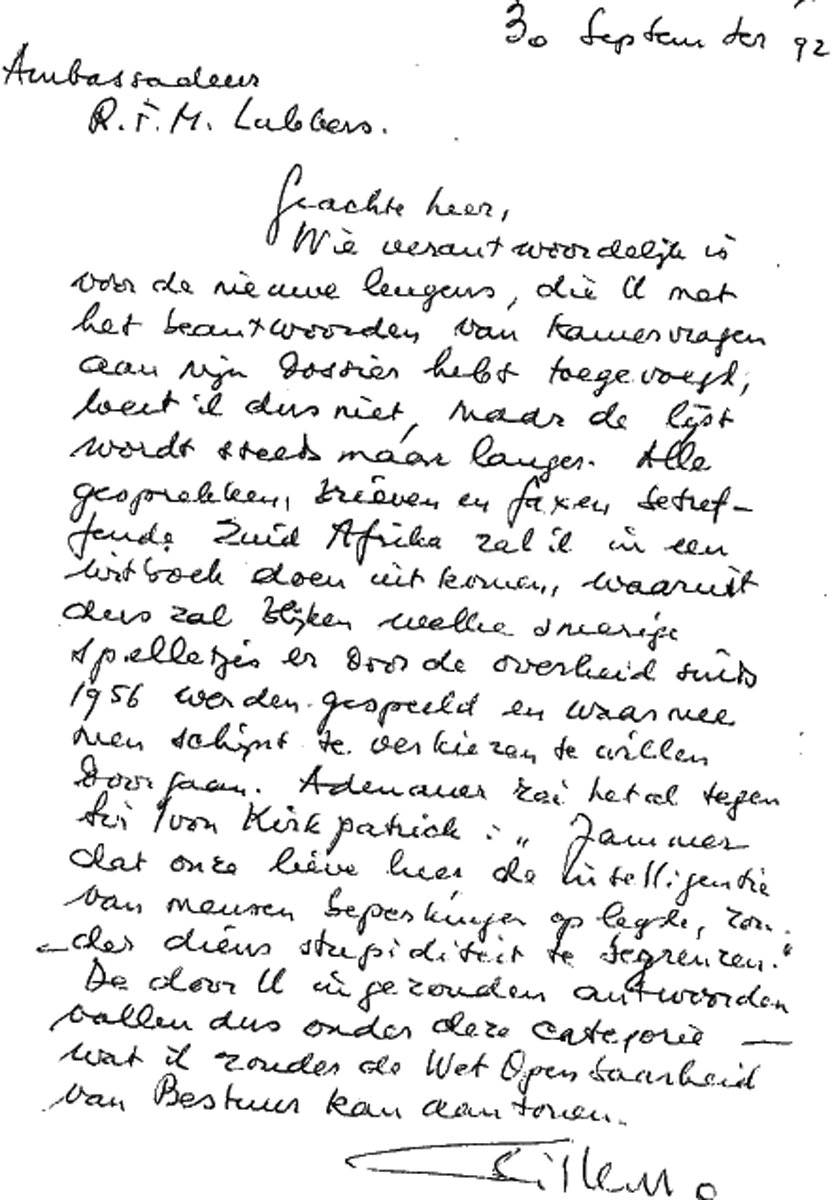 30 September 92
Ambassadeur
R.F.M. Lubbers.
Geachte heer,
Wie verantwoordelijk is
voor de nieuwe leugens, die U met
het beantwoorden van Kamervragen
aan mijn dossier hebt toegevoegd,
weet ik dus niet, maar de lijst
wordt steeds maar langer. Alle
gesprekken, brieven en faxen betref-
fende Zuid Afrika zal ik in een
witboek doen uitkomen, waaruit
dus zal blijken welke smerige
spelletjes er door de overheid sinds
1956 werden gespeeld en waarmee
men schijnt te verkiezen te willen
doorgaan. Adenauer zei het al tegen
Sir Ivon Kirkpatrick: „Jammer
dat onze lieve heer de intelligentie
van mensen beperkingen op legde, zon-
der diens stupiditeit te begrenzen."
De door U ingezonden antwoorden
vallen dus onder deze categorie —
wat ik zonder de Wet Openbaarheid
van Bestuur kan aantonen.